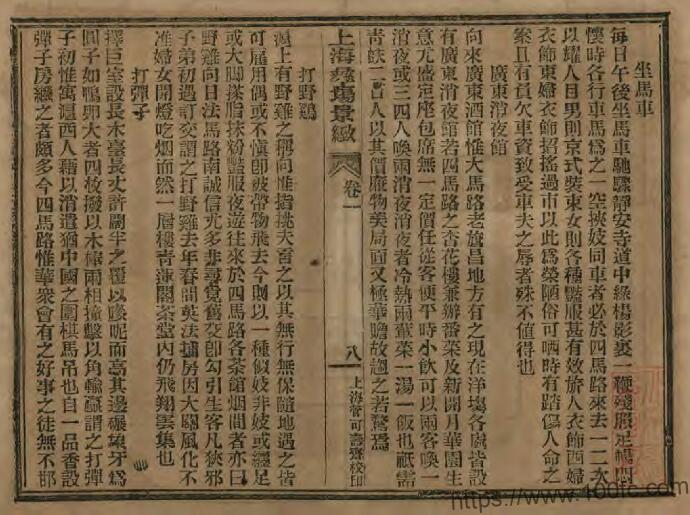 坐馬車
每日午後坐馬車馳驟靜安寺道中綠楊影裏一種
懷時各行車馬爲之一空挾妓同車者必於四馬路來去一二次
以耀人目男則京式裝束女則各種豔服甚有效旂人衣飾西婦
衣飾東婦衣飾招搖過市以此爲榮陋俗可哂時有踏傷人命之
案且有負欠車資致受車夫之辱者殊不值得也
廣東消夜館
向來廣東酒館惟大馬路老旗昌地方有之現在洋塲各處皆設
有廣東消夜館若四馬路之杏花樓兼辦番菜及新開月華園生
意尤盛定座包席無一定價任從客便平時小飲可以兩客喚一
消夜或三四人喚兩消夜消夜者冷熱兩葷菜一湯一飯也祇需
青蚨二百人以其價廉物美局面又極華瞻故趨之若鶩焉
上海彝塲景緻
卷一
八
上海管可壽齋校印
打野鷄
滬上有野雞之稱向惟指挑夫言之以其無行無保隨地遇之皆
可雇用偶或不愼卽被帶物飛去今則以一種似妓非妓或纏足
或大脚搽脂抹粉豔服夜遊往來於四馬路各茶館烟間者亦曰
野雞向日法馬路南誠信尤多非尋覓舊交卽勾引生客凡狹邪
子弟初遇訂交謂之打野雞去年春間英法捕房因大關風化不
准婦女開燈吃烟而然一層樓青蓮閣茶堂內仍飛翔雲集也
打彈子
擇巨室設長木臺長丈許闊半之覆以
圓子如鴨卵大者四枚撥以木棒兩相撞擊以角輸贏謂之打彈
子初惟寓滬西人藉以消遣猶中國之圍棋馬吊也自一品香設
彈子房繼之者頗多今四馬路惟華衆會有之好事之徒無不邯
https://www.100fc.com